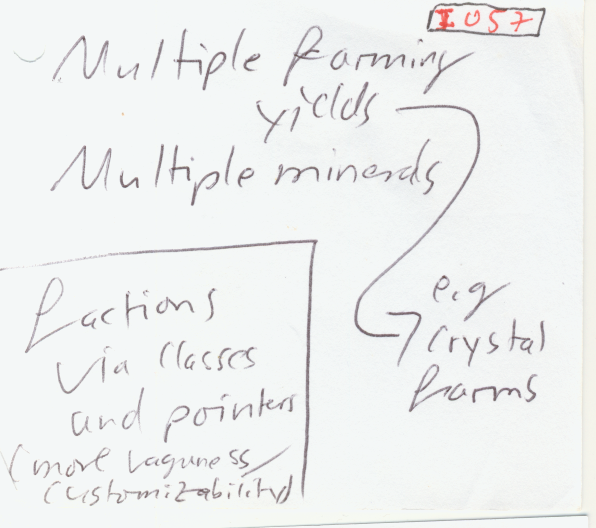 I057
Multiple farming
yields
Multiple minerals
e.g
Crystal
farms
factions
via classes
and pointers
(more vagueness/
customizability)